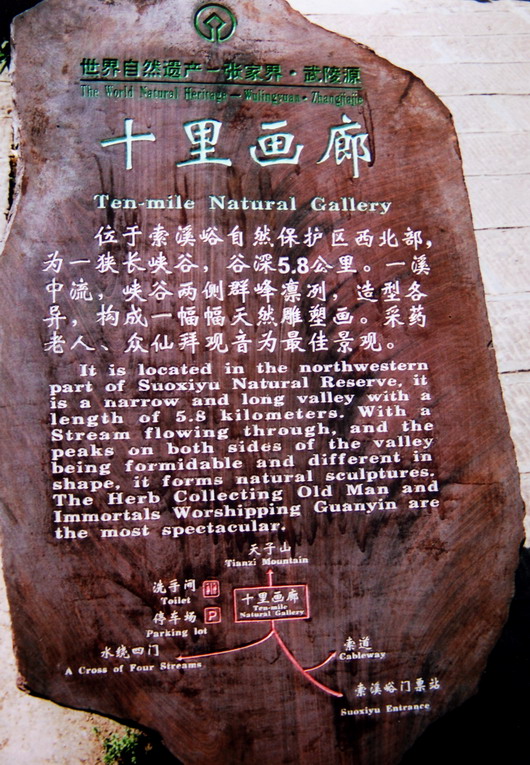 世界自然遗产一张家界·武陵源
The World Natural Heritage — Wulingyuan · Zhangjiajie
十里画廊
Ten-mile Natural Gallery
位于索溪峪自然保护区西北部，
为一狭长峡谷，谷深5.8公里。一溪
中流，峡谷两侧群峰凛冽，造型各
异，构成一幅幅天然雕塑画。采药
老人、众仙拜观音为最佳景观。
It is located in the northwestern
part of Suoxiyu Natural Reserve, it
is a narrow and long valley with a
length of 5.8 kilometers. With a
Stream flowing through, and the
peaks on both sides of the valley
being formidable and different in
shape, it forms natural sculptures.
The Herb Collecting Old Man and
Immortals Worshipping Guanyin are
the most spectacular.
天子山
Tianzi Mountain
洗手间
Toilet
停车场 P
Parking lot
十里画廊
Ten-mile
Natural Gallery
水绕四门
A Cross of Four Streams
索道
Cableway
索溪峪门票站
Suoxiyu Entrance